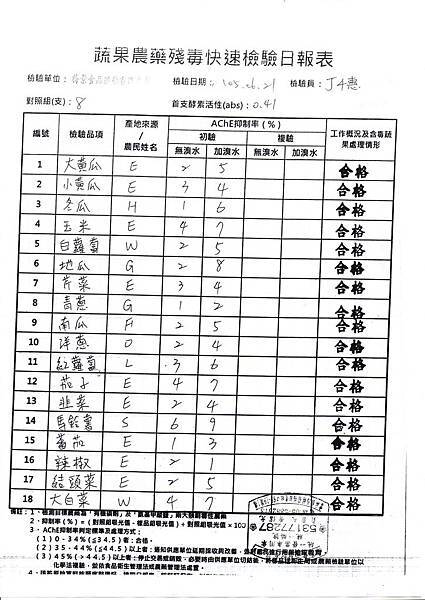 蔬果農藥殘毒快速檢驗日報表
檢驗單位： 檢驗日期：105.06.21 檢驗員：
對照組(支)：8 首支酵素活性(abs)：0.41
編號 檢驗品項 產地來源/農民姓名 AChE抑制率（%） 工作概況及含毒蔬果處理情形
初驗 複驗
無溴水 加溴水 無溴水 加溴水
1 大黃瓜 E 2 5 合格
2 小黃瓜 E 3 4 合格
3 冬瓜 H 1 6 合格
4 玉米 E 4 7 合格
5 白蘿蔔 W 2 5 合格
6 地瓜 G 2 8 合格
7 芹菜 E 3 4 合格
8 青蔥 G 1 2 合格
9 南瓜 H 2 5 合格
10 洋蔥 O 2 4 合格
11 紅蘿蔔 L 3 6 合格
12 茄子 E 4 7 合格
13 韭菜 E 2 4 合格
14 馬鈴薯 S 6 9 合格
15 蕃茄 E 1 3 合格
16 辣椒 E 2 1 合格
17 結頭菜 E 2 5 合格
18 大白菜 W 4 7 合格
53177287
2、抑制率（%）=（對照組吸光值-樣品組吸光值）÷對照組吸光值×100
3、AChE抑制率判定標準及處理方式：
(1) 0-34%(≦34.5)者：合格。